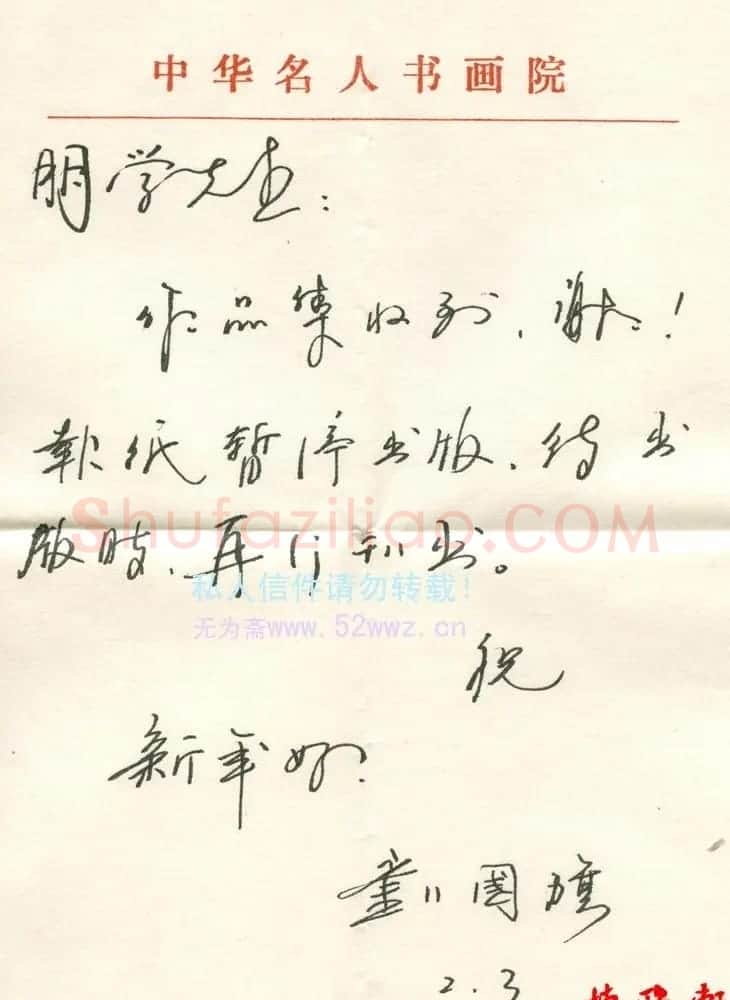 中华名人书画院
朋学先生：
作品集收到、谢谢！
报纸暂停出版、待出
版时、再行刊出。
Shufaziliao.COM
私人信件请勿转载！
无为斋www.52wwz.cn
祝
新年好！
国旗
2.3